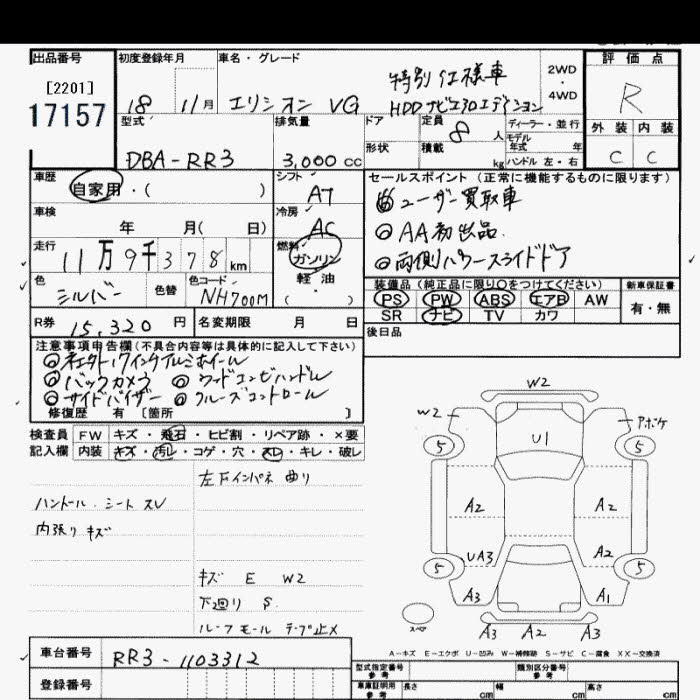 出品番号 初度登録年月 車名・グレード 評価点
[2201]
17157
18 11月 エリシオン VG 特別仕様車
HDDナビエアロエディション
2WD
・
4WD
R
型式 排気量 ドア 定員 8 人 ディーラー・並行 外装 内装
形状 積載 kg モデル年式 年
ハンドル 左・右
DBA-RR3 3,000 cc C C
車歴 自家用・( ) シフト AT
セールスポイント(正常に機能するものに限ります)
ユーザー買取車
◎ AA初出品
◎ 両側パワースライドドア
車検 年 月( 日) 冷房 AC
走行 11万9千378km 燃料 ガソリン
軽油
・
( )
色 シルバー 色替 色コード NH700M
装備品(純正品に限り○をつけてください) 新車保証書
PS PW ABS エアB AW 有・無
SR ナビ TV カワ
R券 15,320 円 名変期限 月 日
後日品
注意事項申告欄(不具合内容等は具体的に記入して下さい)
◎社外17インチアルミホイール
◎バックカメラ ◎ウッドコンビハンドル
◎サイドバイザー ◎クルーズコントロール
修復歴 有 〔箇所 〕
検査員 FW キズ・飛石・ヒビ割・リペア跡・×要
記入欄 内装 キズ・汚レ・コゲ・穴・スレ・キレ・破レ
左下インパネ曲り
ハンドル・シートスレ
内張りキズ
キズ E W2
下廻り S
ルーフモール テープ止メ
W2
W2 アホケ
5 U1 5
A2 A2
UA3 A2
5 5
A3 A1
スペア A3 A2 A3
A-キズ E-エクボ U-凹み W-補修跡 S-サビ C-腐食 XX-交換済
車台番号 RR3-1103312
登録番号
型式指定番号 参考 類別区分番号 参考
車庫証明用 参考 長さ cm 幅 cm 高さ cm